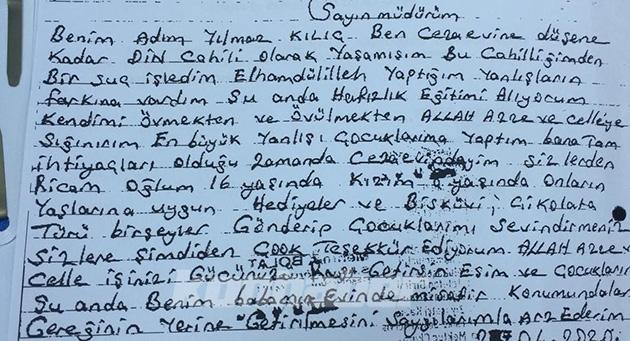 Sayın müdürüm
Benim Adım Yılmaz KILIÇ. Ben Cezaevine düşene
Kadar DİN Cahili Olarak Yaşamışım Bu Cahilliğimden
Bir suç işledim Elhamdülilleh Yaptığım Yanlışların
farkına vardım Şu anda Hafızlık Eğitimi Alıyorum
Kendimi Övmekten ve Övülmekten ALLAH AZZE ve Celleye
Sığınırım En büyük Yanlışı Çocuklarıma Yaptım bana Tam
ihtiyaçları olduğu zamanda Cezaevindeyim sizlerden
Ricam Oğlum 16 yaşında Kızım yaşında Onların
Yaşlarına uygun Hediyeler ve Bisküvi, Çikolata
Türü birşeyler Gönderip Çocuklarımı Sevindirmeniz
Sizlere Şimdiden ÇOOK Teşekkür Ediyorum ALLAH Azze v
Celle işinizi Gücünüzü Getirsin Eşim ve Çocukların
Şu anda Benim babamın Evinde misafir Konumundalar
Gereğinin Yerine Getirilmesini Saygılarımla Arz Ederim